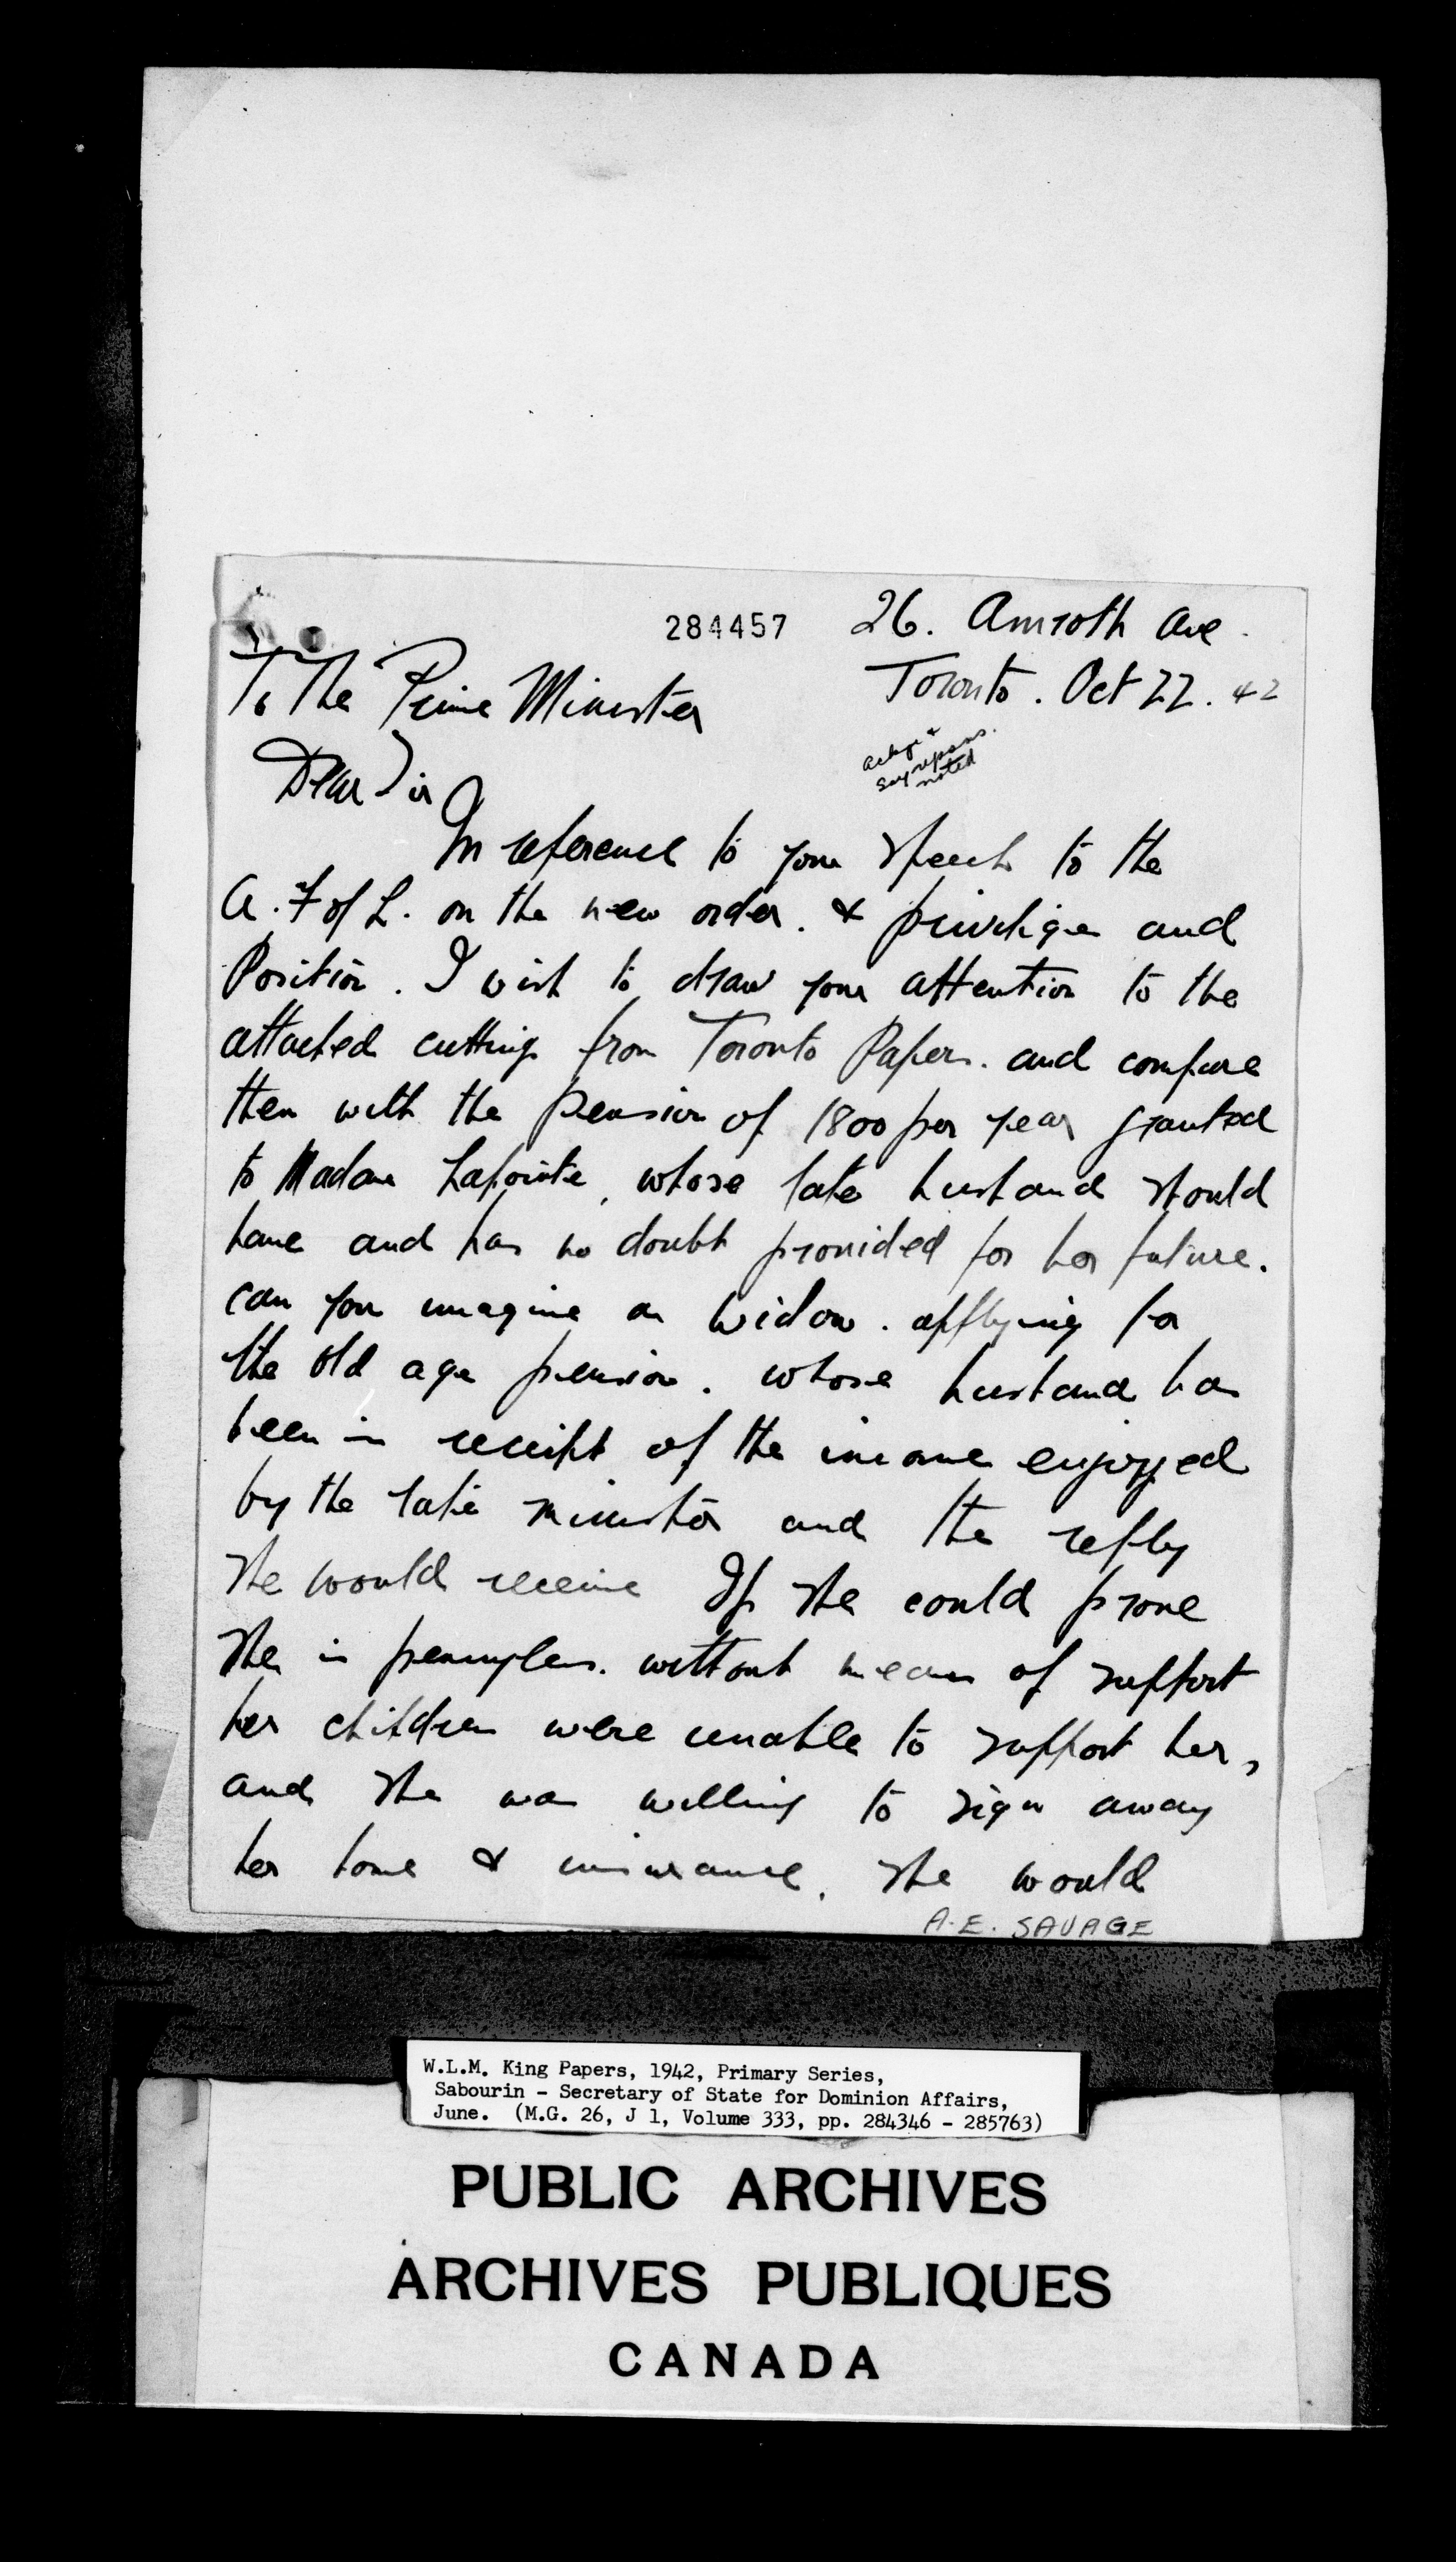 284457
26. Amroth Ave.
Toronto. Oct 22. 42
To The Prime Minister
Dear Sir
noted
In reference to your speech to the
A. F of L. on the new order. & privilige and
Position. I wish to draw your attention to the
attached cuttings from Toronto Papers. and compare
them with the pension of 1800 per year granted
to Madam Lapointe, whose late husband should
have and has no doubt provided for her future.
can you imagine a widow. applying for
the old age pension. whose husband has
been in receipt of the income enjoyed
by the late minister and the reply
she would receive If she could prove
she is pennyless. without means of support
her children were unable to support her,
and she was willing to sign away
her home & insurance. she would
A.E. SAVAGE
W.L.M. King Papers, 1942, Primary Series,
Sabourin - Secretary of State for Dominion Affairs,
June. (M.G. 26, J 1, Volume 333, pp. 284346 - 285763)
PUBLIC ARCHIVES
ARCHIVES PUBLIQUES
CANADA